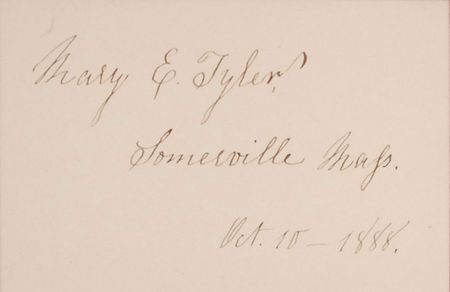 Mary E. Tyler.
Somerville Mass.
Oct. 10 – 1888.